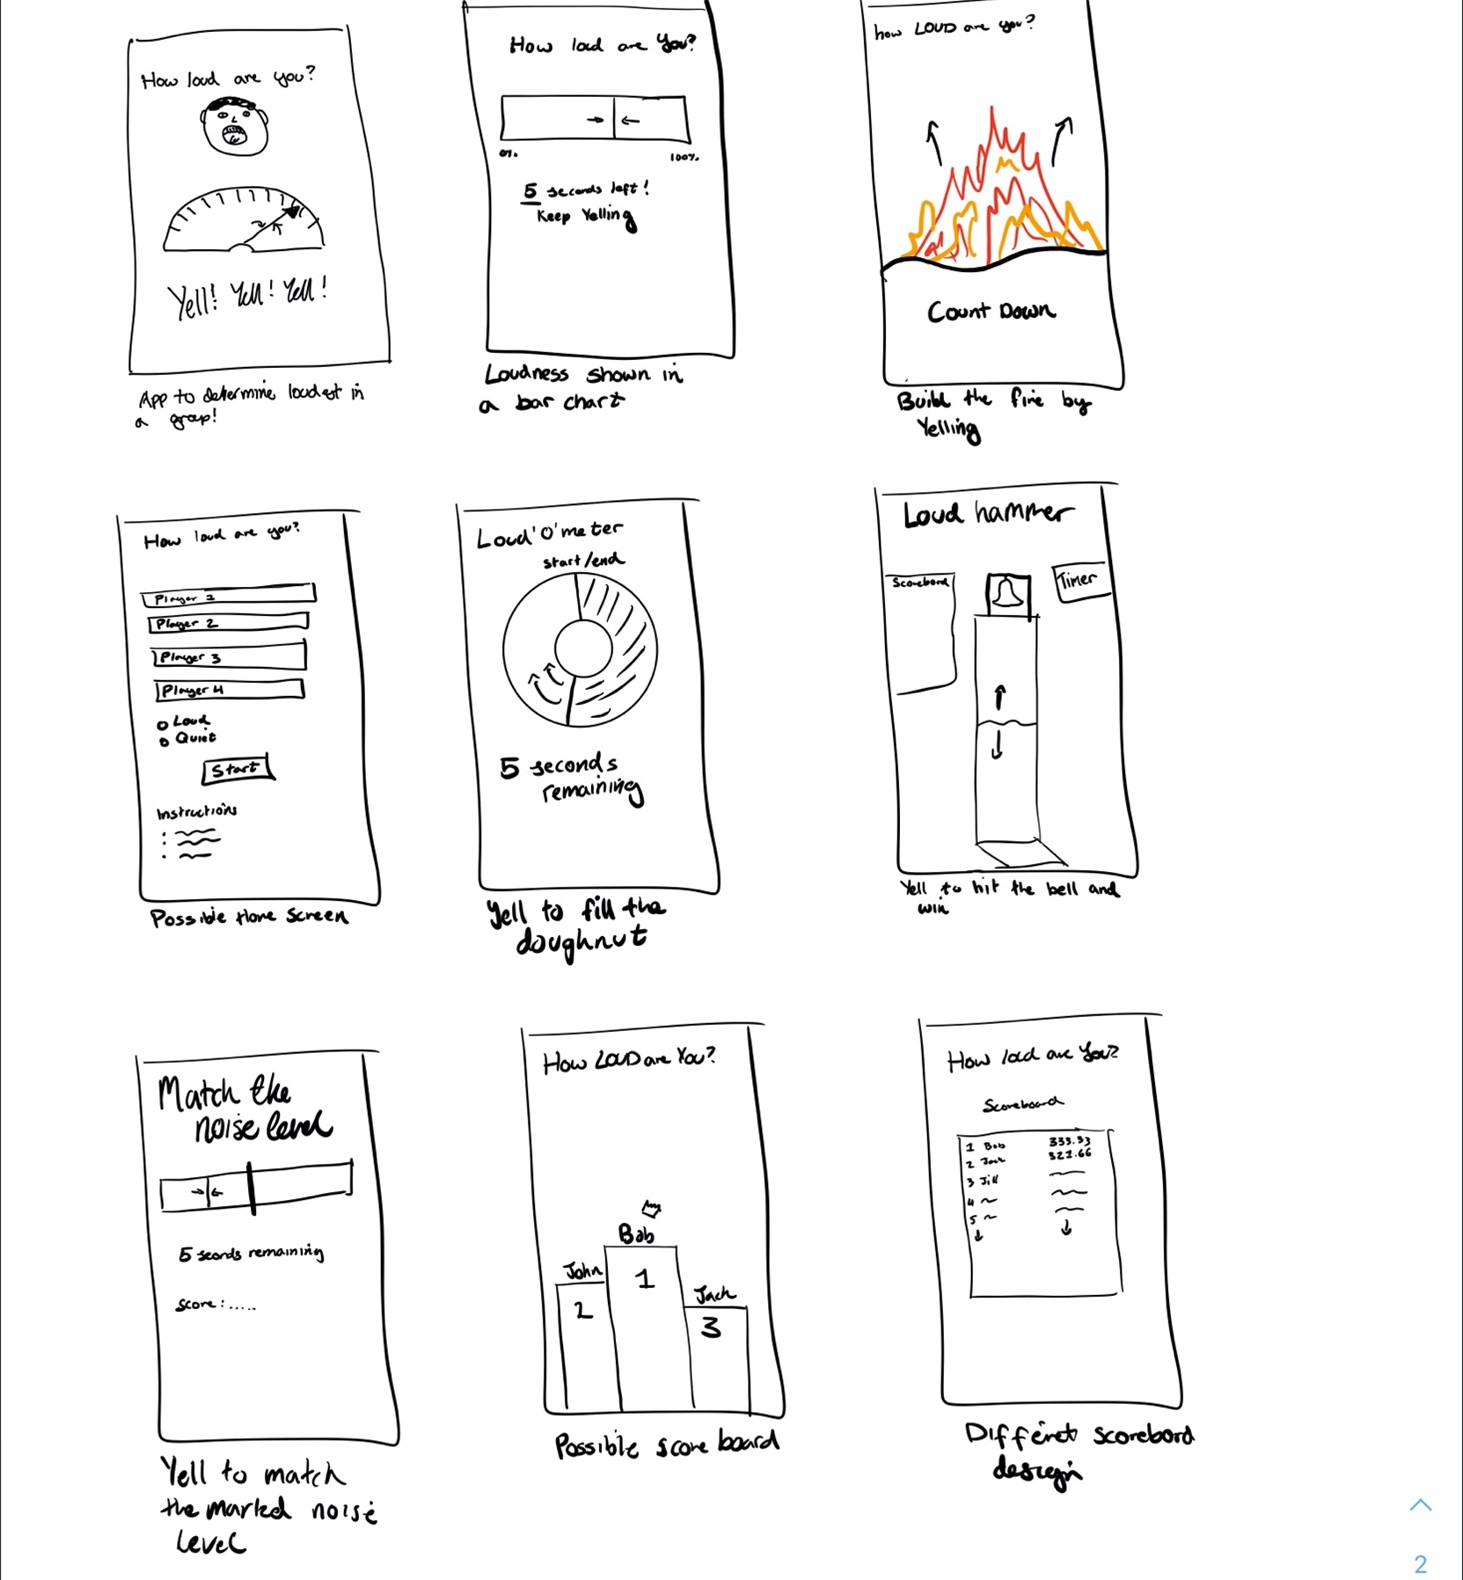 How loud are you?
Yell! Yell! Yell!
App to determine loudest in
a group!
How loud are You?
0%
100%
5 seconds left!
Keep Yelling
Loudness shown in
a bar chart
how LOUD are you?
Count Down
Build the fire by
Yelling
How loud are you?
Player 1
Player 2
Player 3
Player 4
Loud
Quiet
Start
Instructions
Possible Home Screen
Loud'O'meter
start/end
5 seconds
remaining
Yell to fill the
doughnut
Loud hammer
Scorebord
Timer
Yell to hit the bell and
win
Match the
noise level
5 seconds remaining
Score:.....
Yell to match
the marked noise
level
How LOUD are You?
Bob
John
1
2
Jack
3
Possible score board
How loud are You?
Scoreboard
1 Bob 333.33
2 Jack 322.66
3 Jill
4
5
Different scorebord
design
2